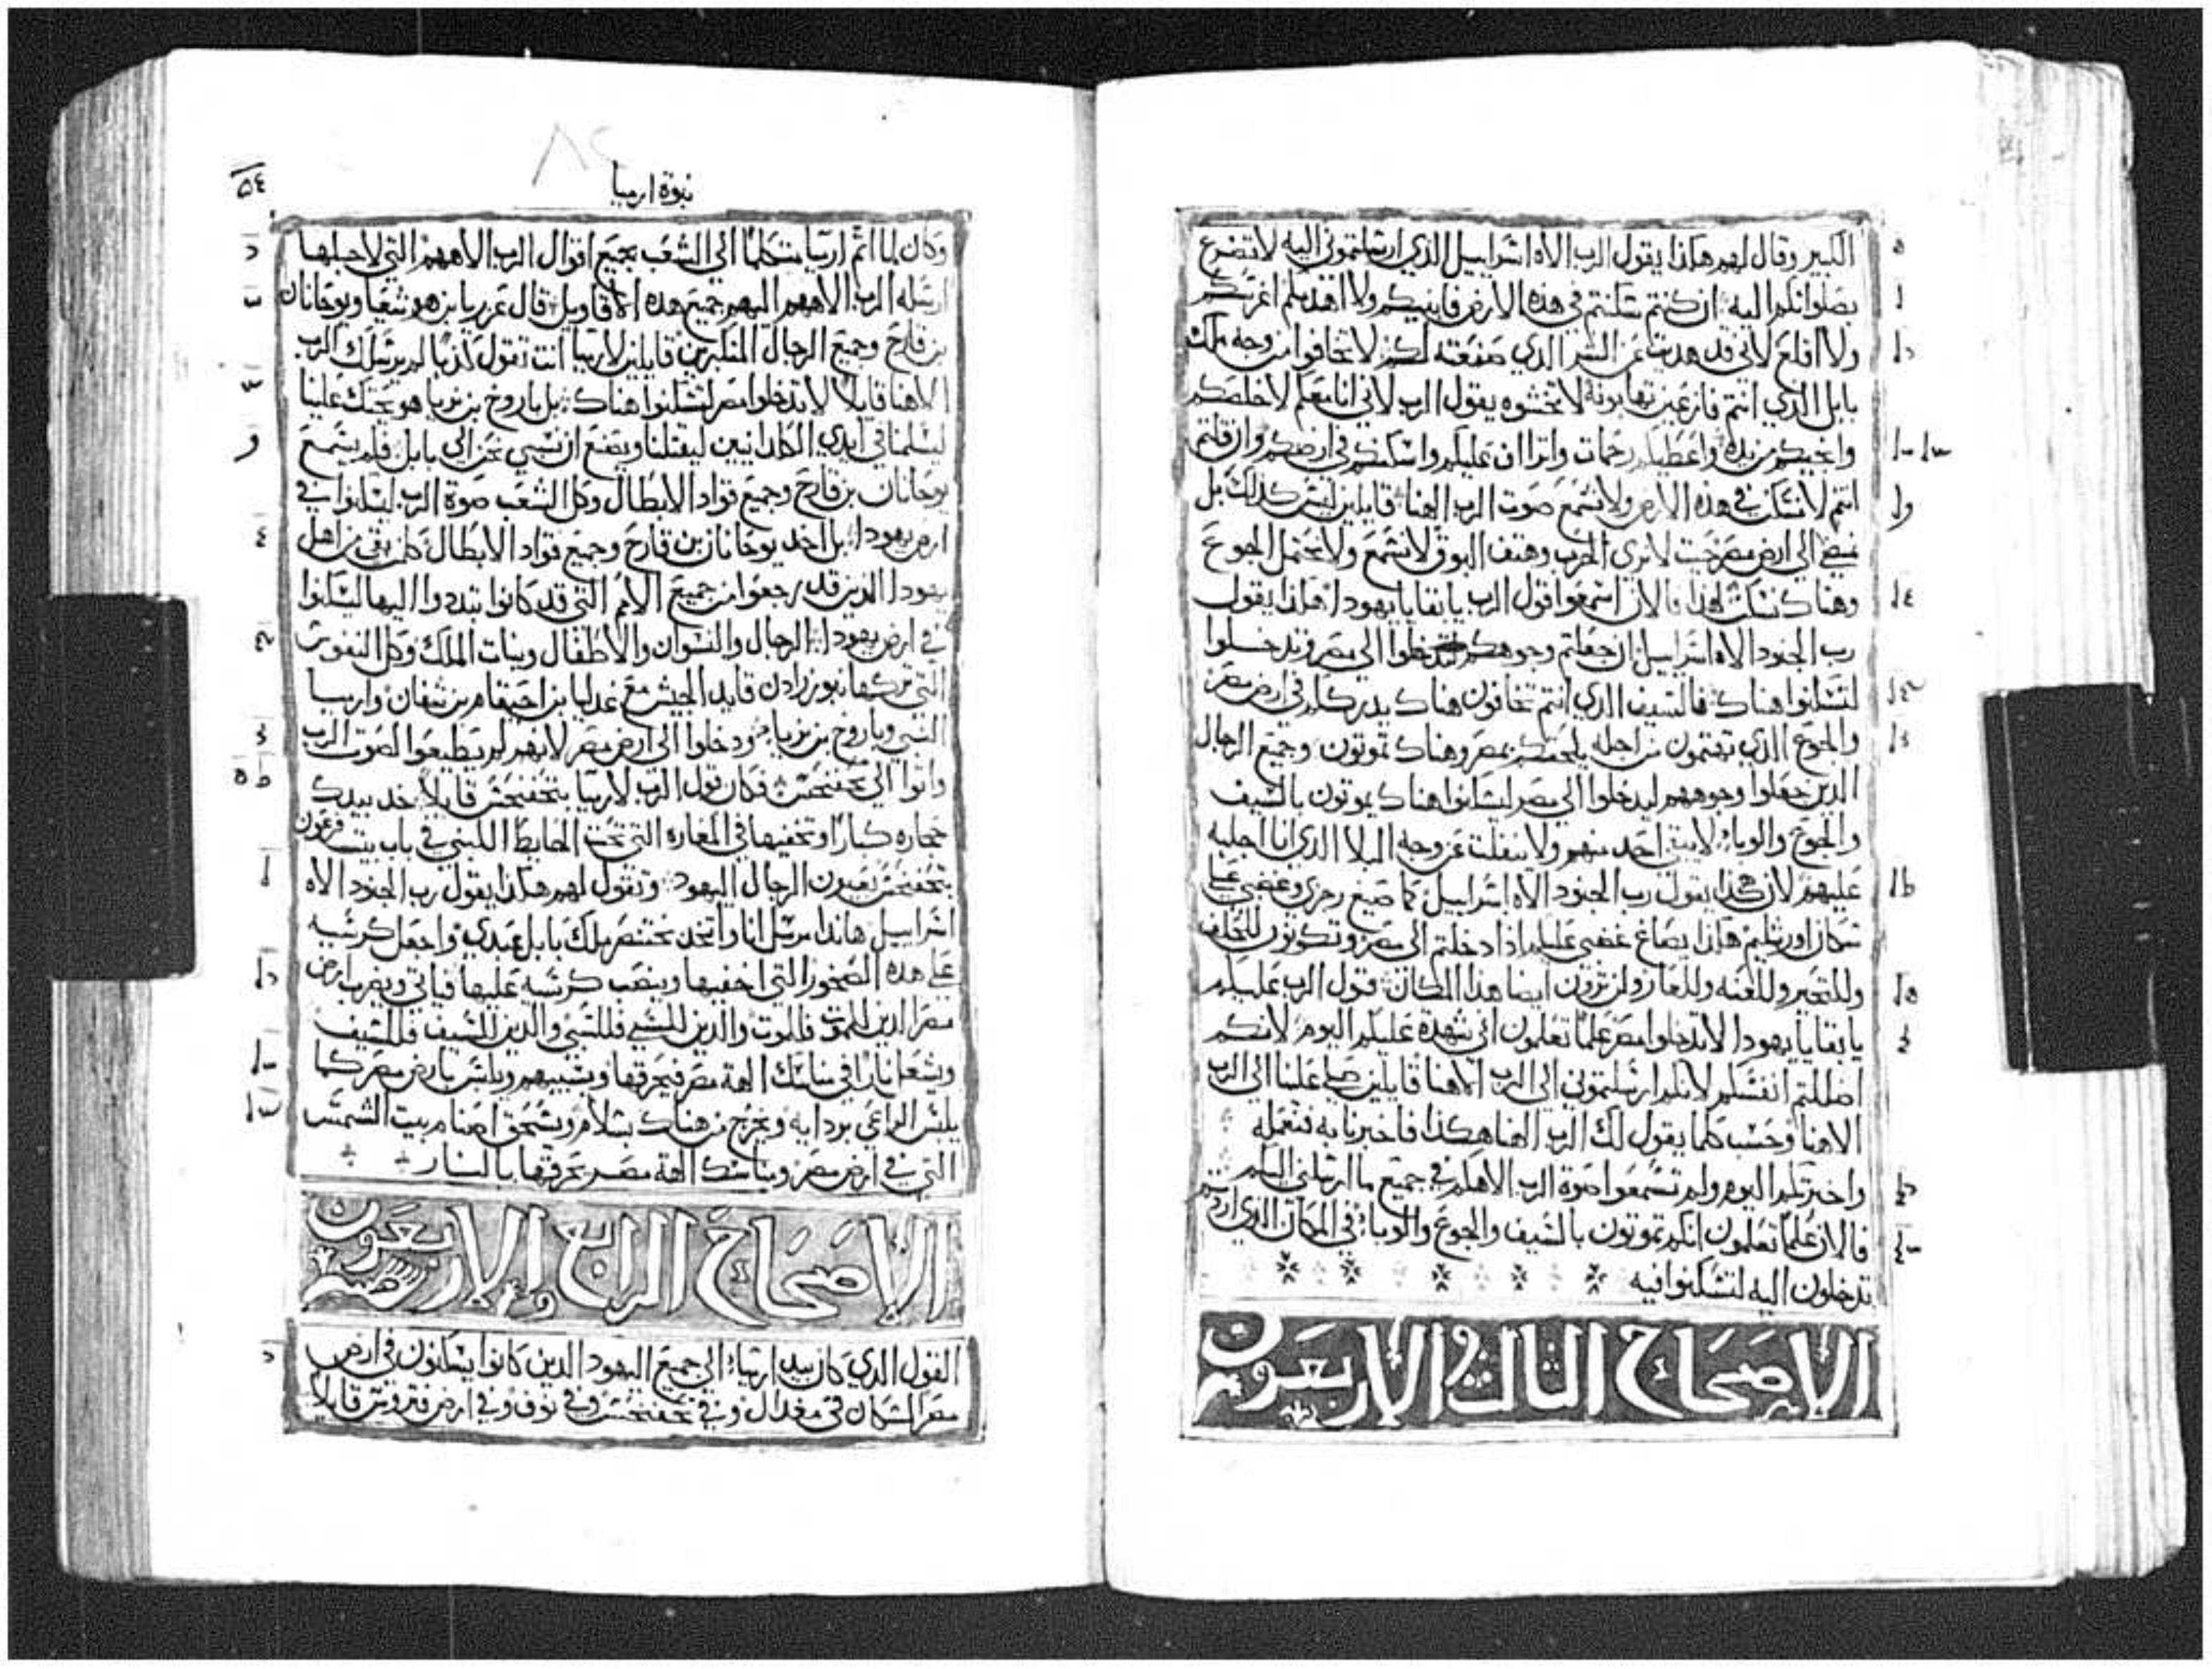 الكبير وقال لهم هكذا يقول الرب الاه اسراييل الذي ارسلتموني اليه لاتضرع
بصلواتكم اليه ان كنتم سكنتم في هذه الارض فابنيكم ولا اهدمكم اغرسكم
ولا اقلع لاني قد هديت عن الشر الذي صنعته لكم لا تخافوا من وجه ملك
بابل الذي انتم فازعين تهابونه لا تخشوه يقول الرب لاني انا معكم لاخلصكم
وانجيكم من يده واعطيكم رحمات واتراان عليكم واسكنكم في ارضكم وان قلتم
انتم لا نسكن في هذه الارض ولا نسمع صوت الرب الهنا قايلين ليس كذلك بل
نمضي الي ارض مصر حيت لا نري الحرب وهتف البوق لا نسمع ولا نحتمل الجوع
وهناك نسكن لهذا فالان اسمعوا قول الرب يا بقايا يهودا هكذا يقول
رب الجنود الاه اسراييل ان جعلتم وجوهكم لتدخلوا الي مصر وتدخلوا
لتسكنوا هناك فالسيف الذي انتم تخافون هناك يدرككم في ارض مصر
والجوع الذي تهتمون من اجله يلحقكم بمصر وهناك تموتون وجميع الرجال
الذين جعلوا وجوههم ليدخلوا الي مصر ليسكنوا هناك يموتون بالسيف
والجوع والوباء لا يبقي احد منهم ولا ينفلت عن وجه البلا الذي انا اجلبه
عليهم لان هكذا يقول رب الجنود الاه اسراييل كما صيغ رجزي وغضبي علي
سكان اورشليم هكذا يصاغ غضبي عليكم اذا دخلتم الي مصر وتكونون للحلف
وللتحير وللعنه وللعار ولن ترون ايضا هذا المكان قول الرب عليكم
يا بقايا يهودا لا تدخلوا مصر علما تعلمون اني شهدة عليكم اليوم لانكم
اضللتم انفسكم لانكم ارسلتموني الي الرب الاهنا قايلين صلي علينا الي الرب
الاهنا وحسب كلما يقول لك الرب الهنا هكذا فاخبرنا به فنعمله
واخبرتكم اليوم ولم تسمعوا صوة الرب الاهكم في جميع ما ارسلني اليكم
فالان علما تعلمون انكم تموتون بالسيف والجوع والوباء في المكان الذي اردتم
تدخلون اليه لتسكنوا فيه
الاصحاح الثالث والاربعون
نبوة ارميا
٥٤
٨٢
وكان لما اتم ارميا متكلما الي الشعب بجميع اقوال الرب الاههم التي لاجلها
ارسله الرب الاههم اليهم جميع هذه الاقاويل قال عزريا بن هوشعيا ويوحانان
بن قارح وجميع الرجال المتكبرين قايلين لارميا انت تقول كذبا لم يرسلك الرب
الاهنا قايلا لا تدخلوا مصر لتسكنوا هناك بل باروخ بن نريا هو يحثك علينا
ليسلمنا في ايدي الكلدانيين ليقتلنا ويصنع ان نسبي نحن الي بابل فلم يسمع
يوحانان بن قارح وجميع قواد الابطال وكل الشعب صوة الرب ليسكنوا في
ارض يهودا بل اخد يوحانان بن قارح وجميع قواد الابطال كلمن بقي من اهل
يهودا الدين قد رجعوا من جميع الامم التي قد كانوا تبددوا اليها ليسكنوا
في ارض يهودا الرجال والنسوان والاطفال وبنات الملك وكل النفوس
التي تركها نبوزرادن قايد الجيش مع غدليا بن احيقام بن شفان وارميا
النبي وباروخ بن نريا ودخلوا الي ارض مصر لانهم لم يطيعوا لصوت الرب
واتوا الي تحفنحس فكان قول الرب لارميا بتحفنحس قايلا خد بيدك
حجاره كبارا وتخفيها في المغاره التي تحت الحايط اللبني في باب بيت فرعون
بتحفنحس بعيون الرجال اليهود وتقول لهم هكذا يقول رب الجنود الاه
اسراييل هاندا مرسل انا واتخد بختنصر ملك بابل عبدي واجعل كرسيه
علي هده الصخور التي اخفيها وينصب كرسيه عليها فياتي ويضرب ارض
مصر الدين للموت فللموت والدين للسبي فللسبي والدين للسيف فللسيف
ويشعل نارا في مناسك الهة مصر فيحرقها ويسبيهم ويلتبس بارض مصر كما
يلتبس الراعي بردايه ويخرج من هناك بسلام ويسحق اصنام بيت الشمس
التي في ارض مصر ومناسك الهة مصر يحرقها بالنار
الاصحاح الرابع والاربعون
القول الدي كان بيد ارميا الي جميع اليهود الدين كانوا يسكنون في ارض
مصر السكان في مغدال وفي تحفنحس وفي نوف وفي ارض فتروس قايلا